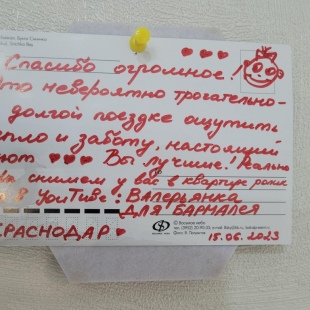 ♥♥♥
Спасибо огромное!
Это невероятно трогательно-
долгой поездке ощутить
тепло и заботу, настоящий
♥♥♥ Вы лучшие! Реально
снимем у вас в квартире ролик
в YouTube: Валерьянка
для Барналея
КРАСНОДАР ♥
15.06.2023